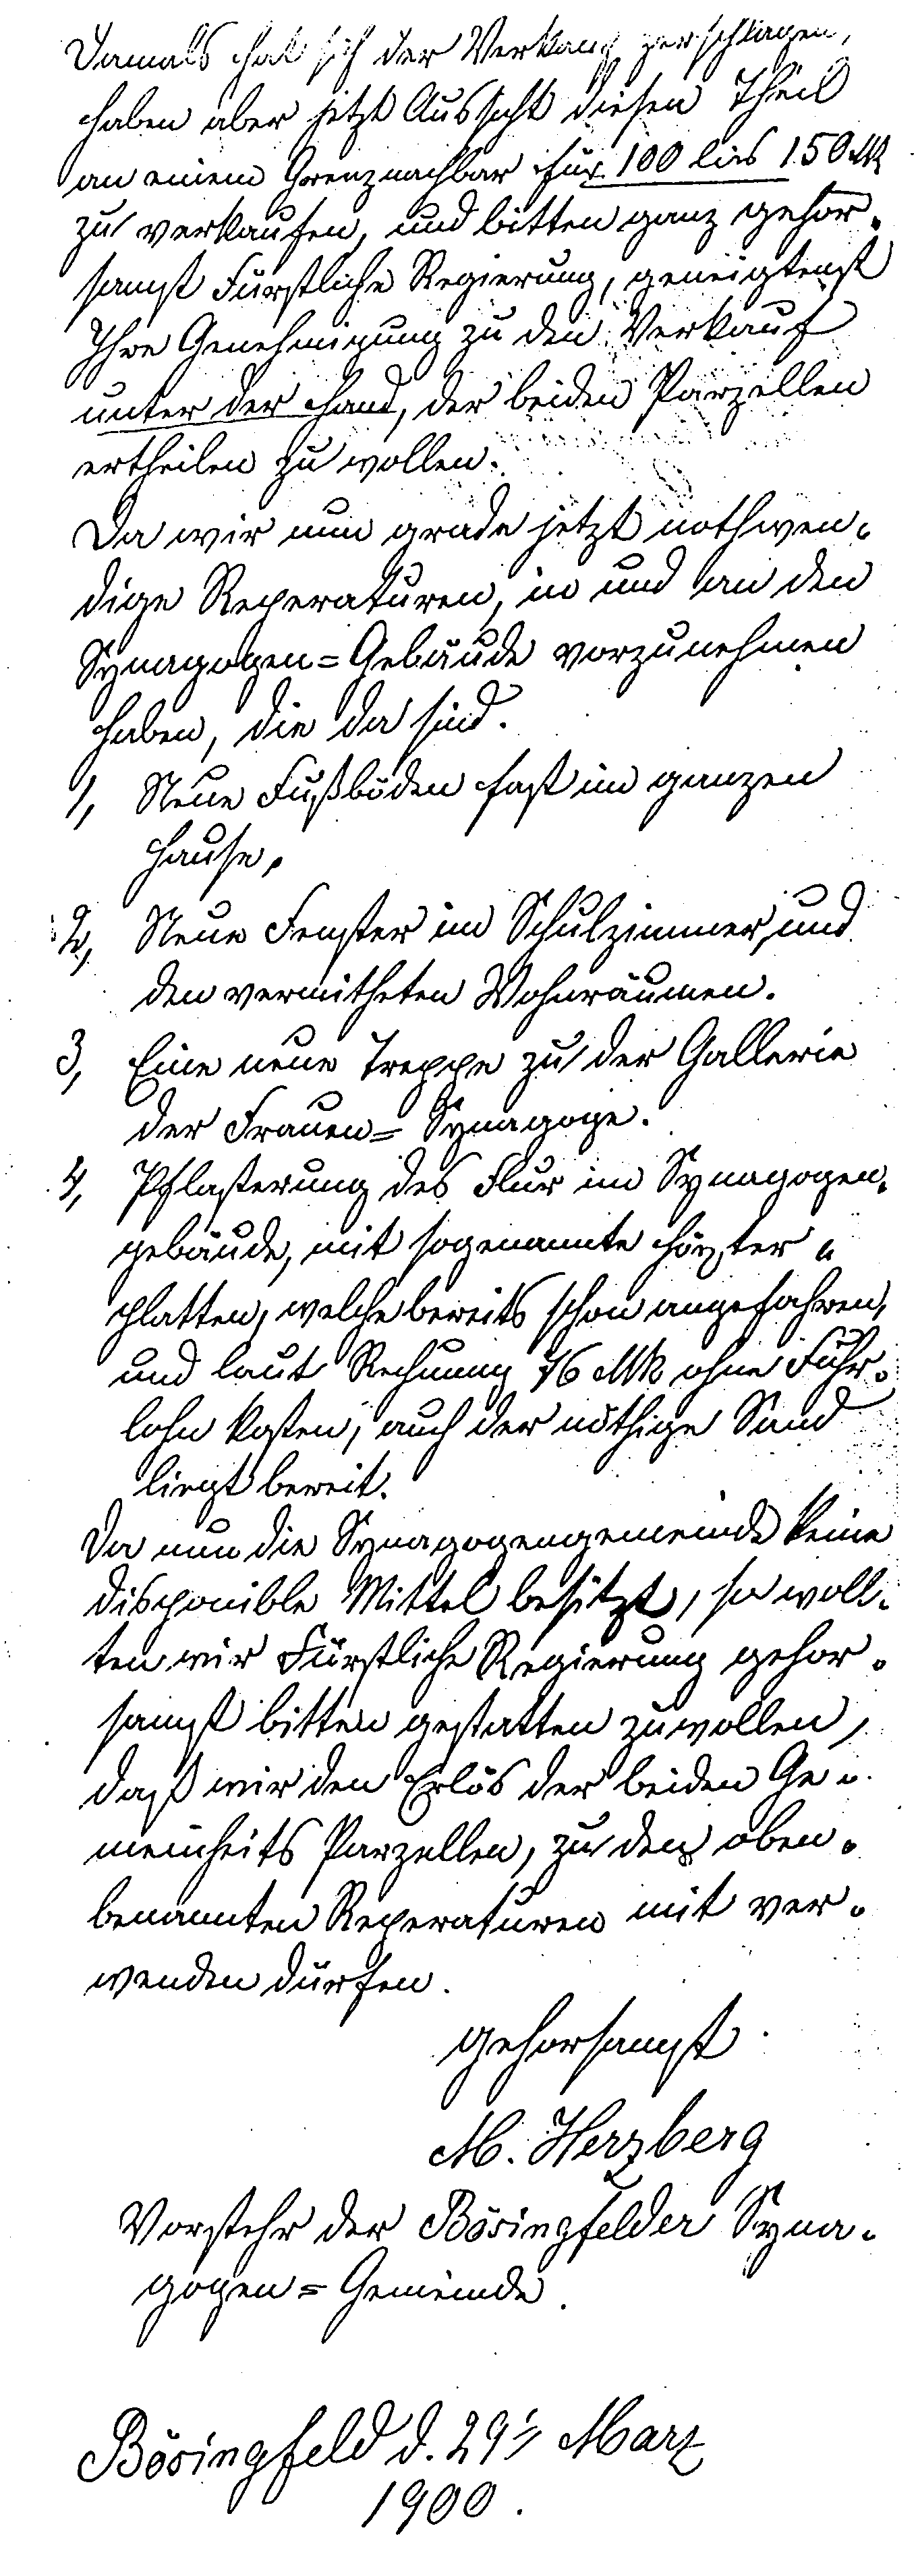 Damals hat sich der Verkauf zerschlagen,
haben aber jetzt Aussicht diesen Theil
an einem Grenznachbar für 100 bis 150 Mk
zu verkaufen, und bitten ganz gehor-
samst Fürstliche Regierung, geneigtenst
Ihre Genehmigung zu den Verkauf
unter der Hand, der beiden Parzellen
ertheilen zu wollen.
Da wir nun grade jetzt nothwen-
dige Reperaturen, in und an den
Synagogen=Gebäude vorzunehmen
haben, die da sind.
1, Neue Fußböden fast im ganzen
Hause,
2, Neue Fenster im Schulzimmer, und
den vermitheten Wohnräumen.
3, Eine neue Treppe zu der Gallerie
der Frauen=Synagoge.
4, Pflasterung des Flur im Synagogen-
gebäude, mit sogenannte Höxter-
platten, welche bereits schon angefahren,
und laut Rechnung 76 Mk ohne Fuhr-
lohn kosten, auch der nöthige Sand
liegt bereit.
Da nun die Synagogengemeinde keine
disponible Mittel besitzt, so woll-
ten wir Fürstliche Regierung gehor-
samst bitten gestatten zu wollen,
daß wir den Erlös der beiden Ge-
meinheits Parzellen, zu den oben-
benannten Reperaturen mit ver-
wenden dürfen.
gehorsamst
M. Herzberg
Vorstehr der Bösingfelder Syna-
gogen=Gemeinde.
Bösingfeld d. 29t Marz
1900.